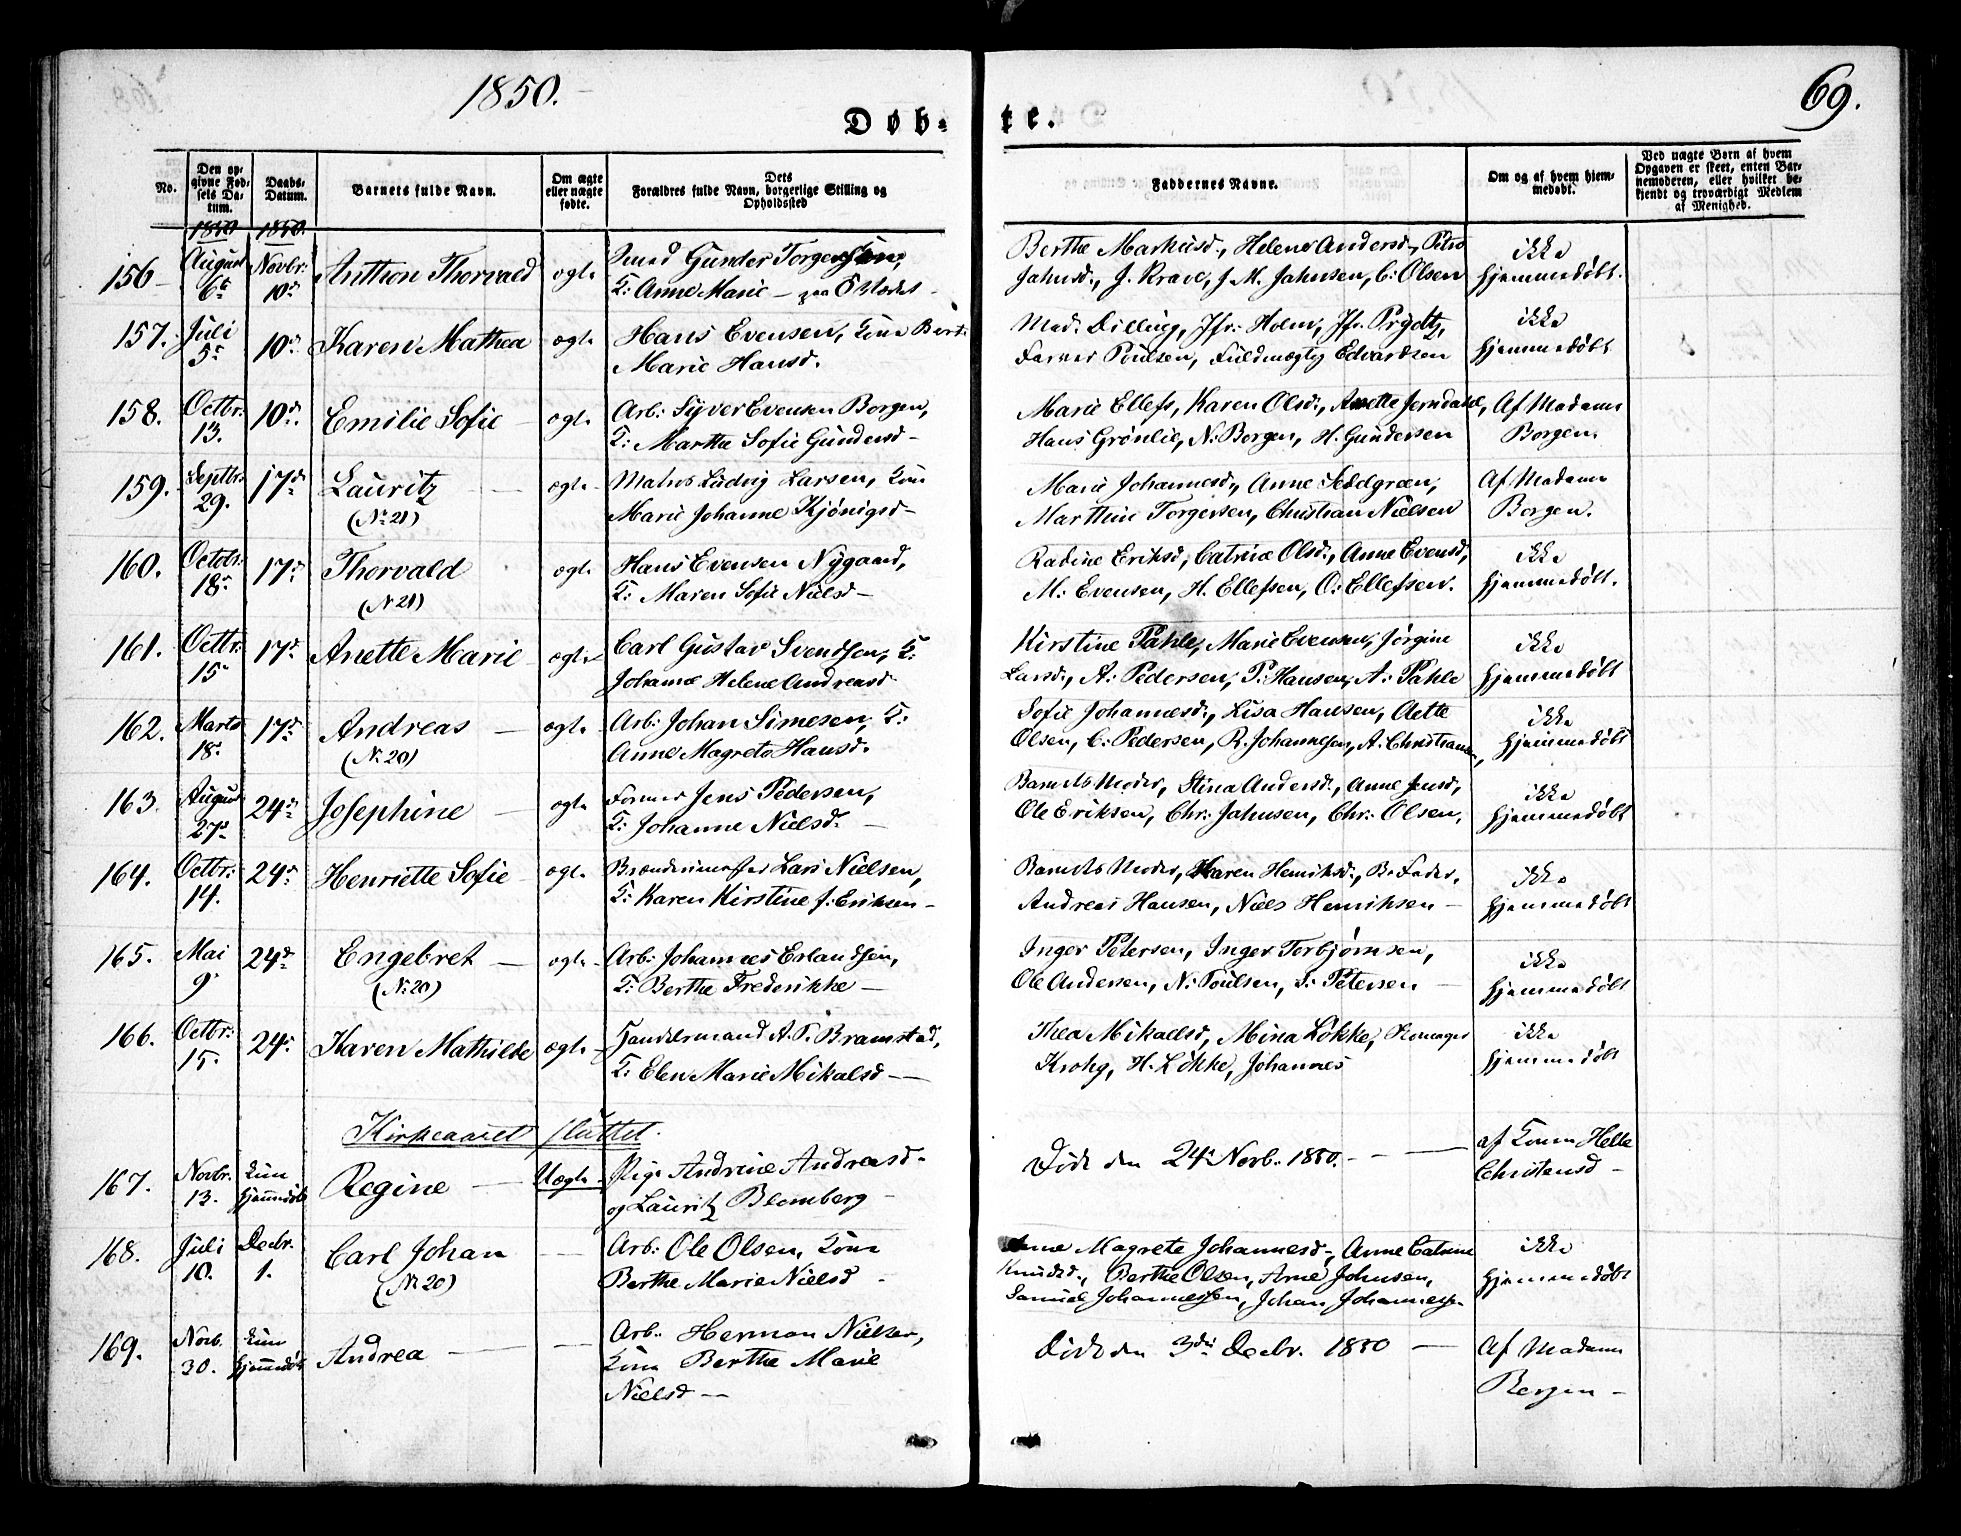 1850.
69.
Døb-
te.
No.
Den op-
givne Fød-
sels Da-
tum.
Daabs-
Datum.
Barnets fulde Navn.
Om ægte
eller uægte
fødte.
Dets
Forældres fulde Navn, borgerlige Stilling og
Opholdssted
Faddernes Navne.
Om og af hvem hjem-
medøbt.
Ved uægte Børn af hvem
Opgaven er skeet, enten Bar-
nemoderen, eller hvilket be-
kjendt og troværdigt Medlem
af Menighed.
1850 1850.
156 August 6te Novbr: 10de Anthon Thorvald ægte Smed Gunder Torgersen,
K: Anne Marie – paa
Berthe Markusd., Helene Andersd., Petra
Jahnsd., J. Krave, J. M. Jahnsen, C: Olsen
ikke
hjemmedøbt.
157. Juli 5te 10de Karen Mathea ægte Hans Evensen, Kone Berte
Marie Hansd.
Mad. Dilling, Jfr: Holm, Jfr. Prydtz,
Farver Poulsen, Fuldmægtig Edvardsen
ikke
hjemmedøbt
158. Octbr: 13. 10de Emilie Sofie – ægte Arb: Syver Evensen Borgen,
K: Marthe Sofie Gundersd –
Marie Ellefs, Karen Olsd., Anette Jerndahl,
Hans Grönlie, N: Borgen, H. Gundersen
Af Madame
Borgen.
159. Septbr: 29. 17de Lauritz ægte – Matros Ludvig Larsen, Kone
(No 21)
Marie Johanne Kjönigsd –
Marie Johannesd., Anne Seddelgreen,
Marthine Torgersen, Christian Nielsen
Af Madame
Borgen.
160. Octobr: 18de 17de Thorvald ægte Hans Evensen Nygaard,
(No 21)
K: Maren Sofie Nielsd –
Radine Eriksd, Catrine Olsd., Anne Evensd,
M: Evensen, H. Ellefsen, O: Ellefsen.
ikke
hjemmedøbt.
161. Octbr: 15de 17de Anette Marie – ægte Carl Gustav Svendsen, K:
Johanne Helene Andreasd
Kirstine Pahle, Marie Evensen, Jörgine
Larsd., A: Pedersen, P: Hansen, A: Pahle
ikke
hjemmedøbt
162. Marts 18de 17de Andreas – ægte Arb: Johan Simesen, K:
(No 20)
Anne Magrete Hansd.
Sofie Johannesd., Lisa Hansen, Aette
Olsen, C: Pedersen, R. Johannesen, A: Christiansen,
ikke
hjemmedøbt
163. August 27de 24de Josephine – ægte Former Jens Pedersen,
K: Johanne Nielsd. –
Barnets Moder, Stina Andersd., Anne Jensd,
Ole Eriksen, Chr: Jahnsen, Chr: Olsen,
ikke
hjemmedøbt
164. Octbr: 14. 24de Henriette Sofie – ægte Lars Nielsen,
K: Karen Kirstine f: Eriksen –
Barnets Moder, Karen Henriksd., B: Fader,
Andreas Hansen, Niels Henriksen –
ikke
hjemmedøbt
165. Mai 9de 24de Engebret – ægte – Arb: Johannes Erlandsen,
(No: 20)
K: Berthe Frederikke –
Inger Petersen, Inger Torbjörnsen,
Ole Andersen, N: Poulsen, S: Petersen –
ikke
hjemmedøbt
166. Octbr: 15. 24de Karen Mathilde ægte – Handelsmand A. P. Bramstad,
K: Elen Marie Mikalsd –
Thea Mikaelsd, Mina Lökke,
Krohg, H. Lökke, Johannes
ikke
hjemmedøbt
Kirkeaaret sluttet.
167. Novbr. 13. kun hjemmedøbt Regine – Uægte – Pige Andrine Andreasd –
og Lauritz Blomberg –
Död den 24de Novb. 1850. – – –
af Konen Helle
Christensd –
168. Juli 10. Decbr. 1. Carl Johan – Arb: Ole Olsen, Kone
(No 20)
Berthe Marie Nielsd –
Anne Magrete Johannesd., Anne Catrine
Knudsd., Berthe Olsen, Arne Johnsen,
Samuel Johannessen, Johan Johannessen
ikke
hjemmedøbt
169. Novb. 30. kun hjemmedøbt Andrea – – Arb.. Herman Nielsen,
Kone Berthe Marie
Nielsd –
Död den 3die Decbr. 1850 –
Af Madame
Borgen –